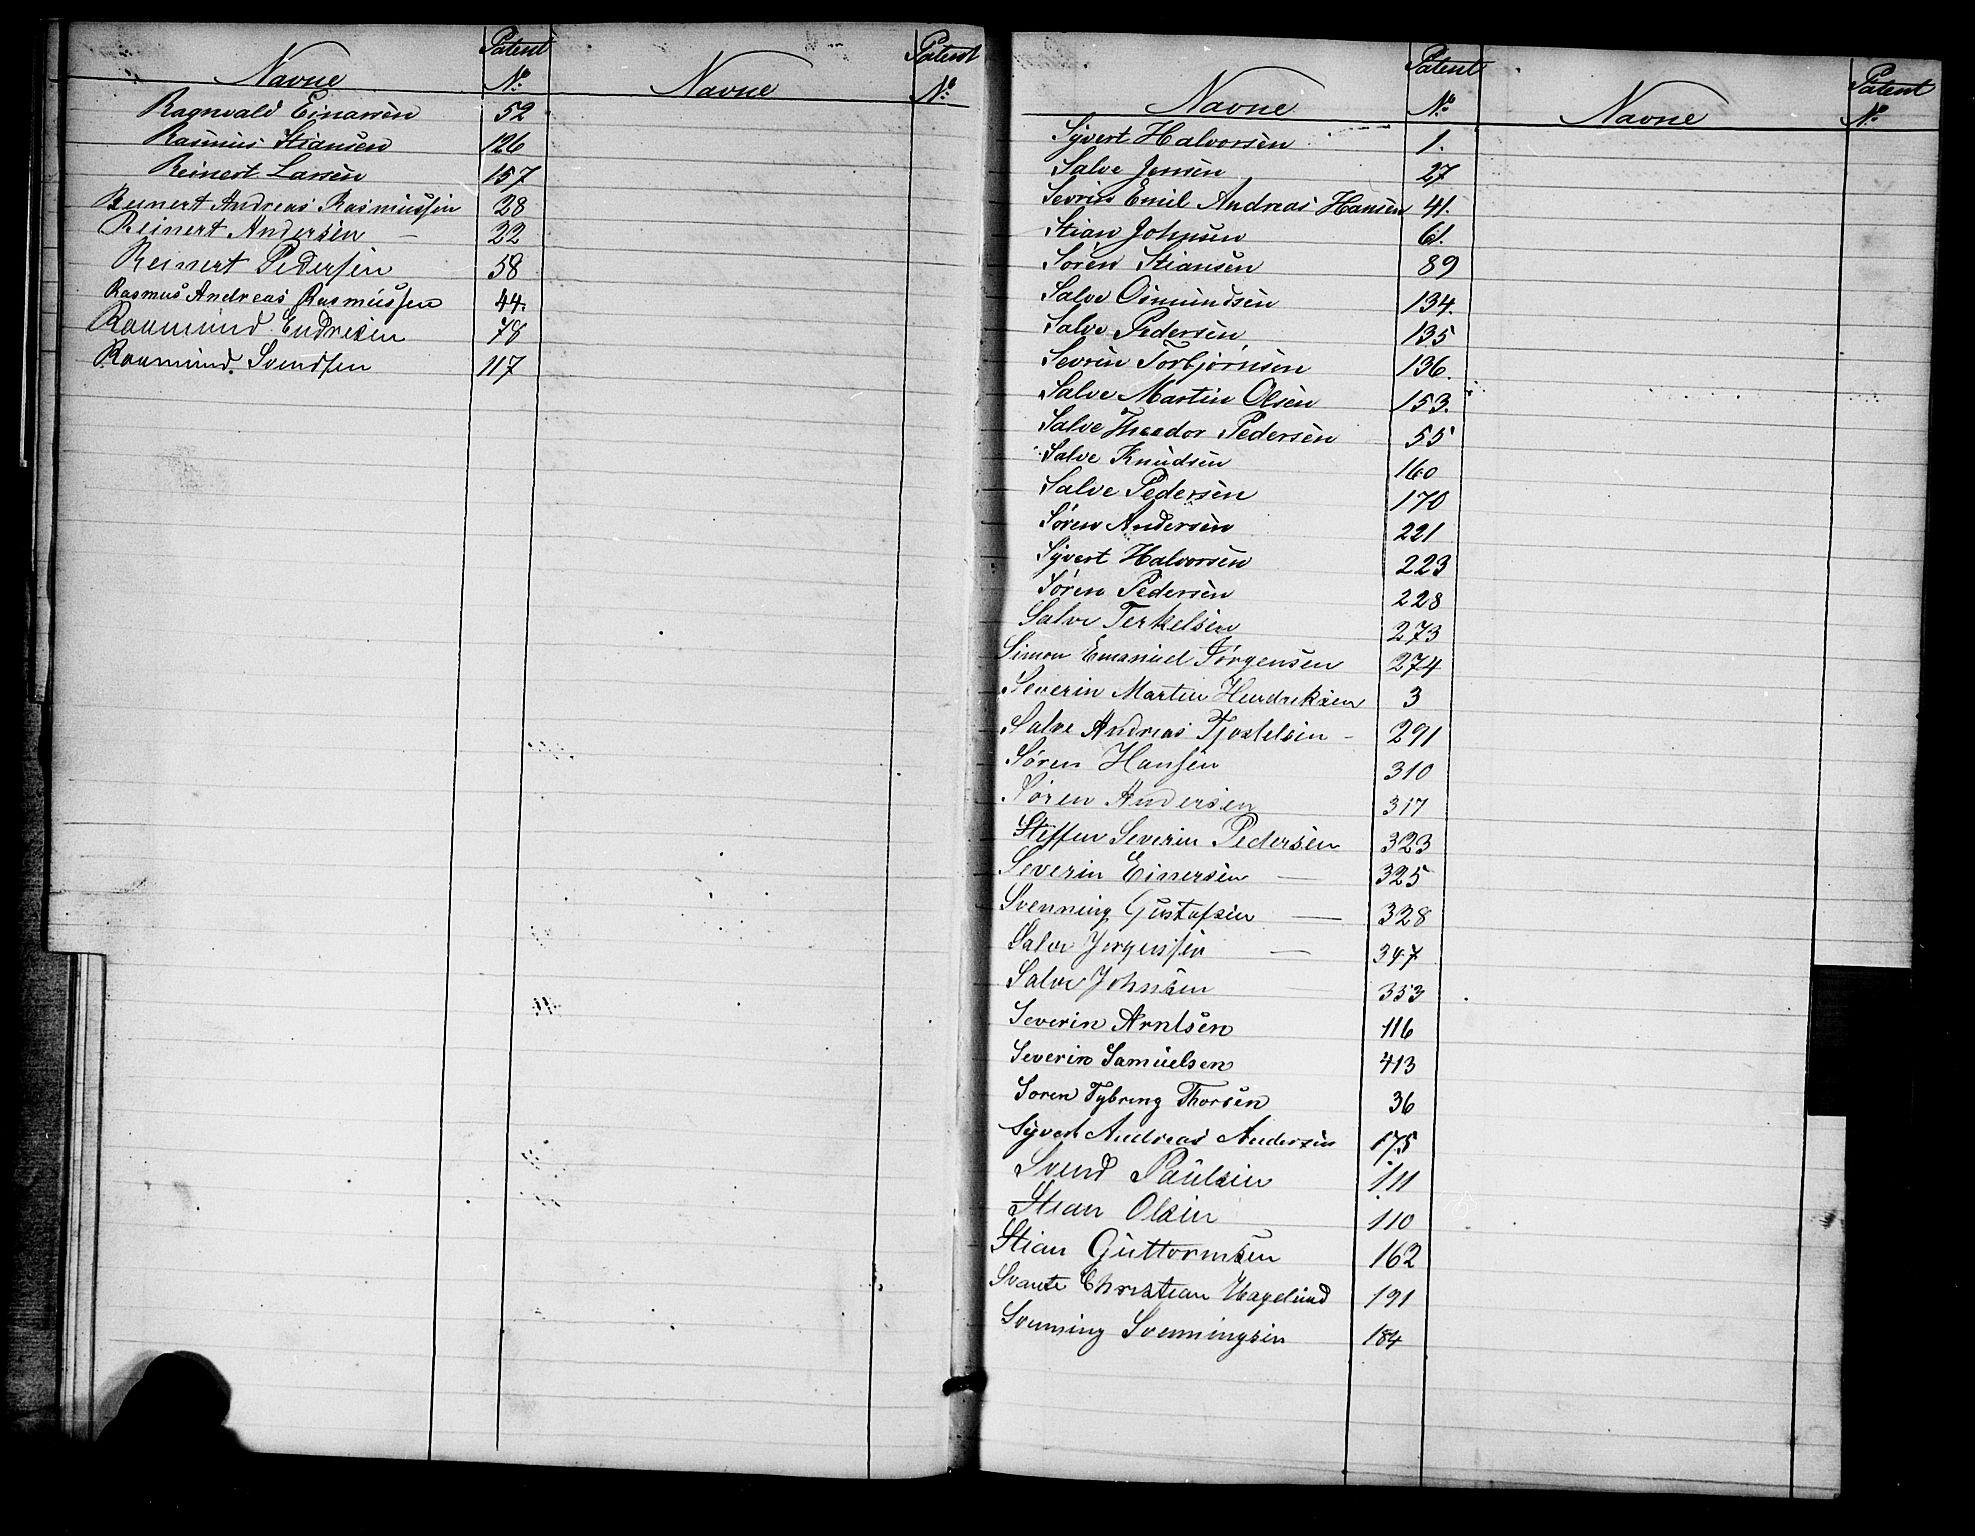 Navne Patent No. Navne Patent No.
Ragnvald Einarsen 52
Rasmus Stiansen 126
Reinert Larsen 157
Reinert Andreas Rasmussen 28
Reinert Andersen 22
Reinert Pedersen 58
Rasmus Andreas Rasmussen 44.
Raamund Endresen 78
Raamund. Svendsen 117
Navne Patent No. Navne Patent No.
Syvert Halvorsen 1.
Salve Jensen 27
Sevrin Emil Andreas Hansen 41.
Stian Johnsen 61.
Søren Stiansen 89
Salve Osmundsen 134.
Salve Pedersen 135
Sevrin Torbjørnsen 136.
Salve Martin Olsen 153.
Salve Theodor Pedersen 55
Salve Knudsen 160
Salve Pedersen 170
Søren Andersen 221
Syvert Halvorsen 223
Søren Pedersen 228
Salve Terkelsen 273
Simon Emanuel Jørgensen 274
Severin Martin Hendriksen 3
Salve Andreas Tjostelsen 291
Søren Hansen 310
Søren Andersen 317
Steffen Severin Pedersen 323
Severin Einersen 325
Svenning Gustafsen 328
Salve Jørgenssen 347
Salve Johnsen 353
Severin Arntsen 116
Severin Samuelsen 413
Soren Tybring Thorsen 36
Syvert Andreas Andersen 175
Svend Paulsen 111
Stian Olsen 110
Stian Guttormsen 162
Svante Christian Hagelund 191
Svenning Svenningsen 184